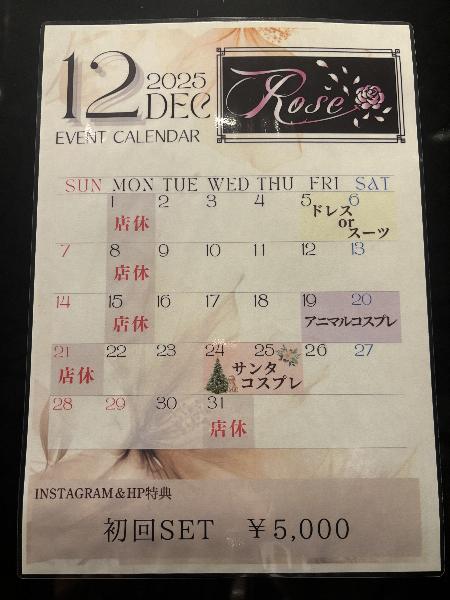 12 2025 DEC
Rose
EVENT CALENDAR
SUN MON TUE WED THU FRI SAT
1 2 3 4 5 6
店休
ドレス
or
スーツ
7 8 9 10 11 12 13
店休
14 15 16 17 18 19 20
店休
アニマルコスプレ
21 22 23 24 25 26 27
店休
サンタ
コスプレ
28 29 30 31
店休
INSTAGRAM&HP特典
初回SET ¥5,000